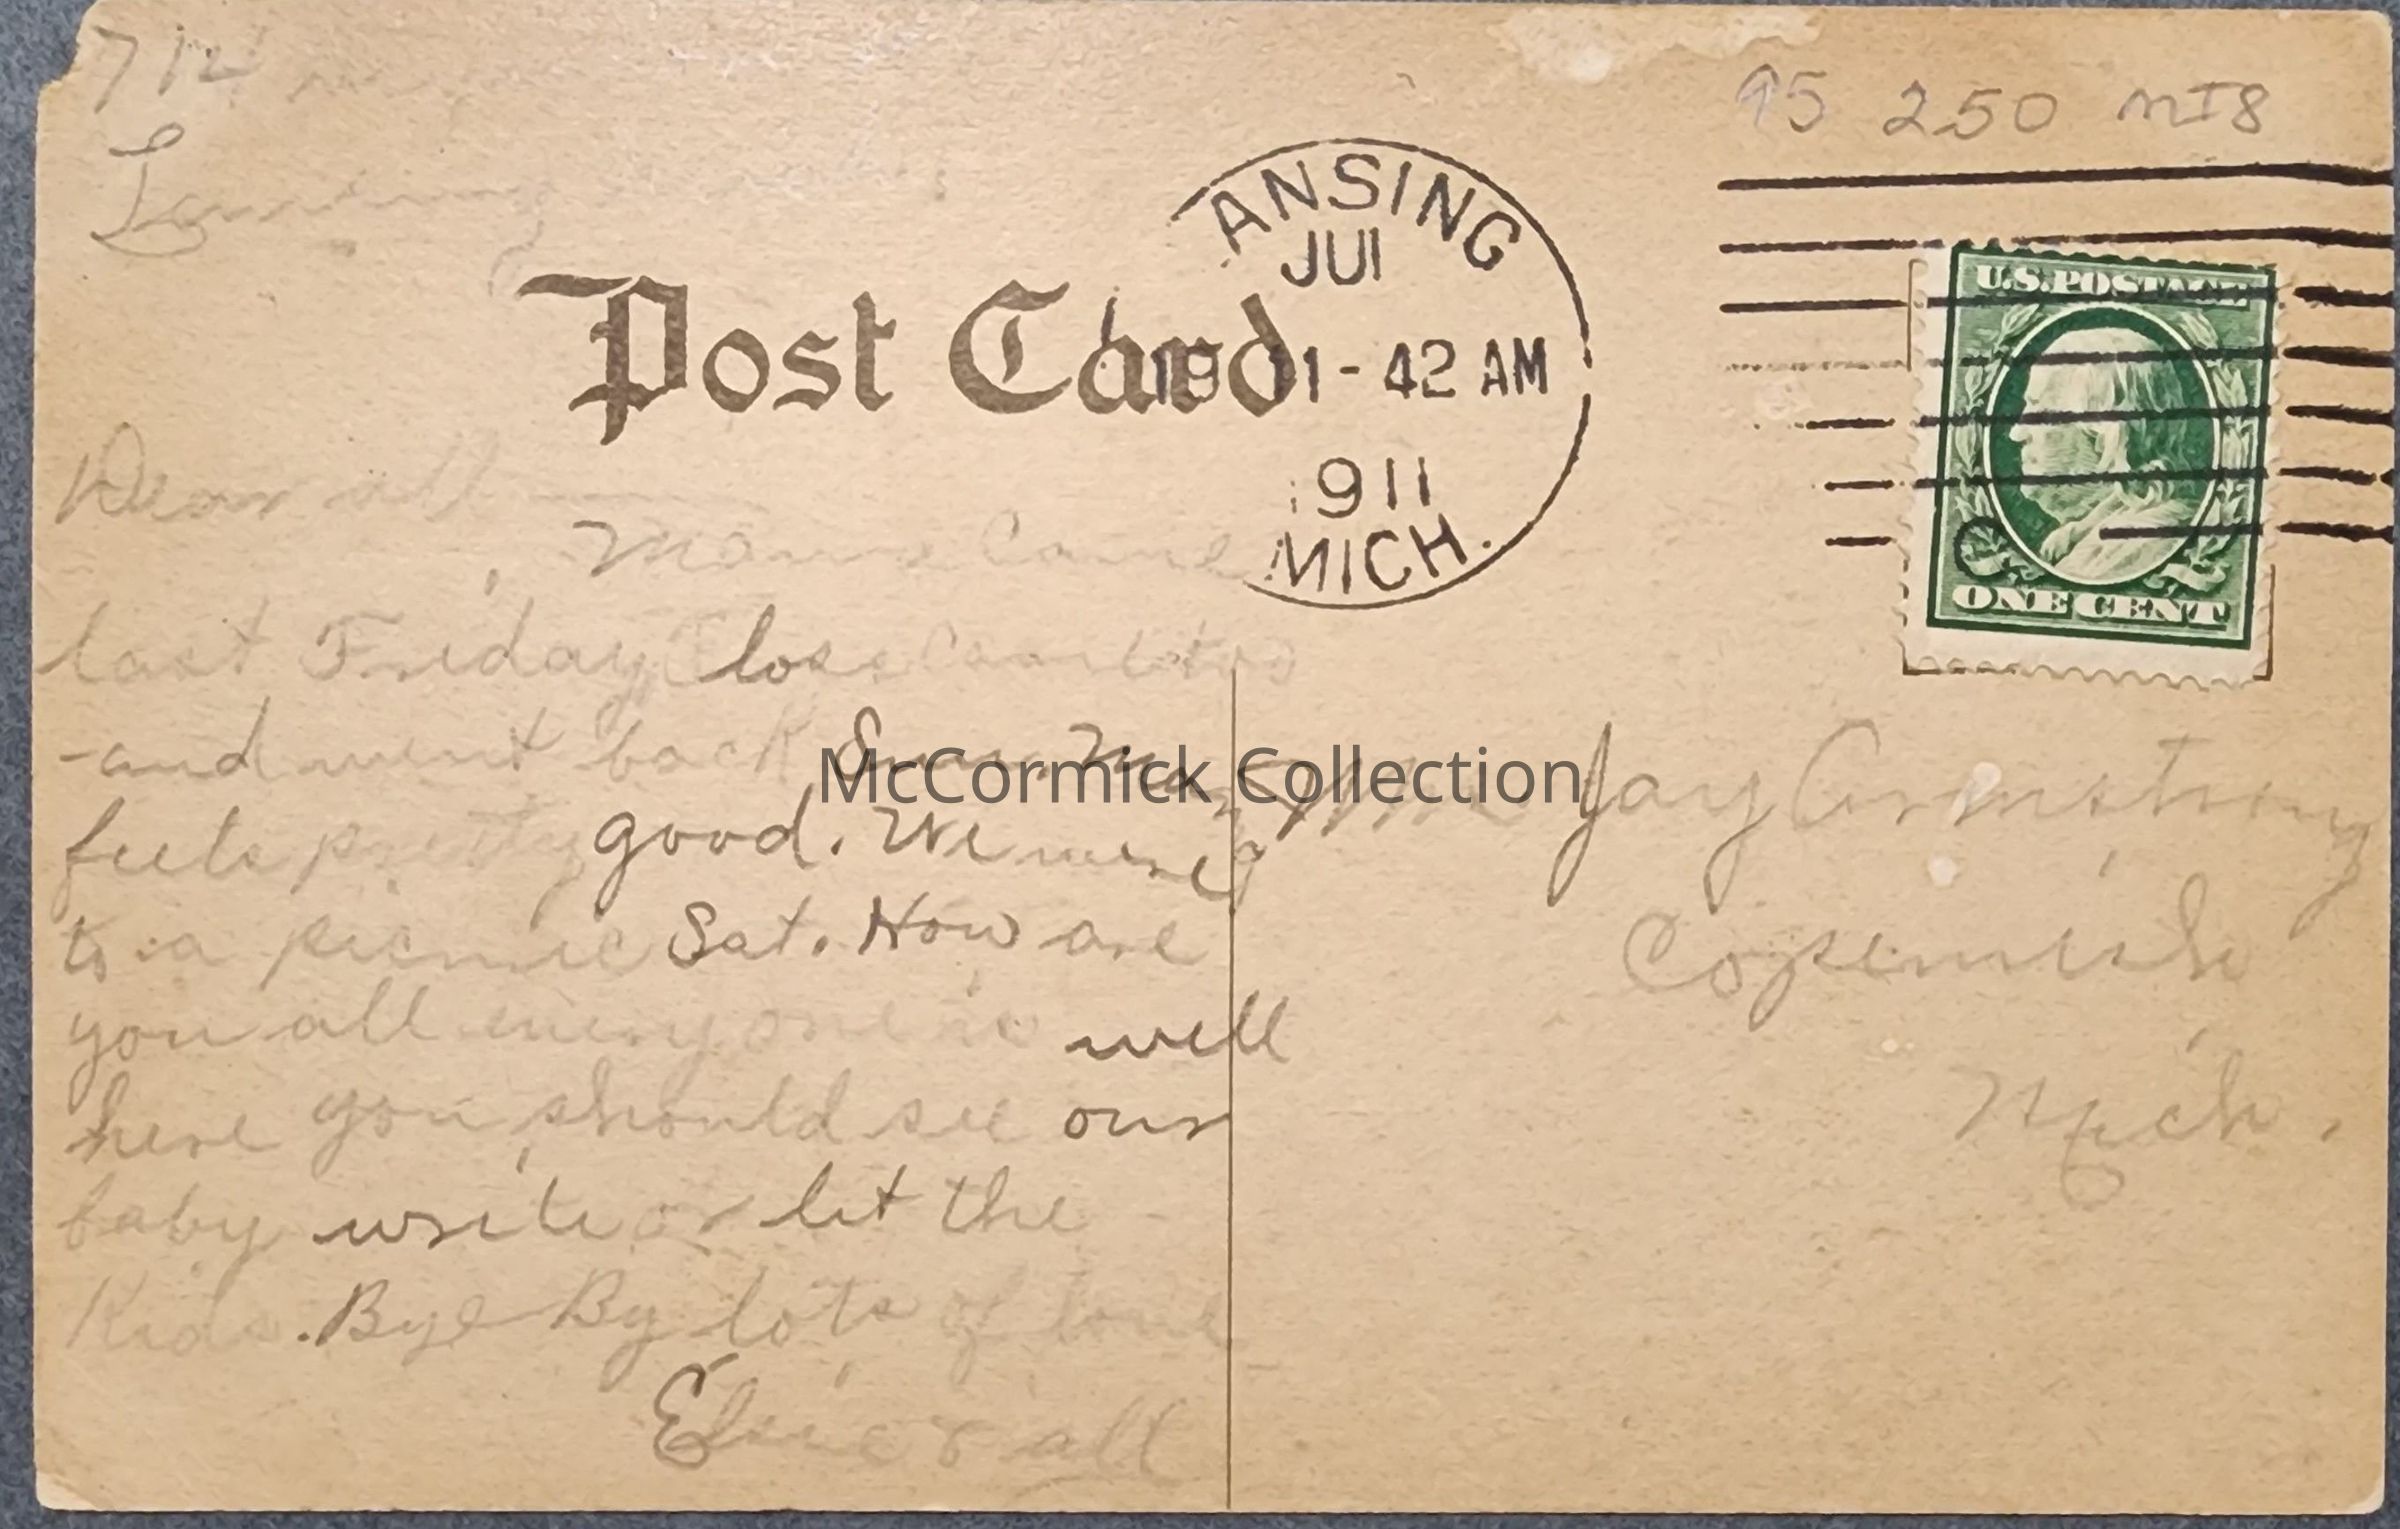 712
Lansing
95 250 MI8
ANSING
JUl
11-42 AM
1911
MICH.
Post Card
U.S.POSTAGE
ONE CENT
Dear all
Mama Came
last Friday
and went back Sun. Ma
feels pretty good. We were
to a picnic Sat. How are
you all everyone is well
here you should see our
baby write or let the
Kids. Bye By lots of love
Elsie & all
Jay Armstrong
Copemish
Mich.
McCormick Collection